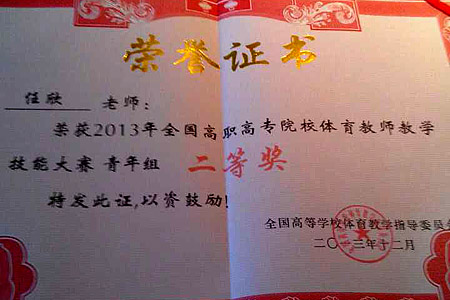 荣誉证书
任欣 老师:
荣获2013年全国高职高专院校体育教师教学
技能大赛 青年组 二等奖
特发此证,以资鼓励!
全国高等学校体育教学指导委员
二〇一三年十二月